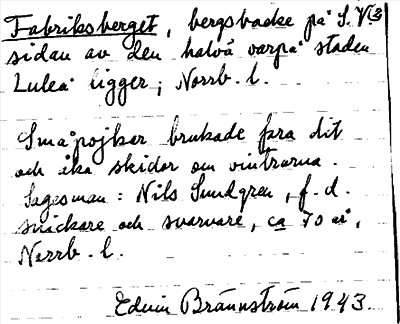 Fabriksberget, bergsbacke på S.V.
sidan av den halvö varpå staden
Luleå ligger; Norrb. l.
Småpojkar brukade fara dit
och åka skidor om vintrarna.
Sagesman: Nils Sundgren, f.d.
snickare och svarvare, ca 70 år,
Norrb. l.
Edvin Brännström 1943.